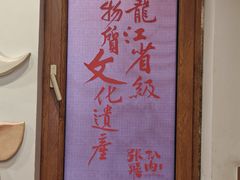 龍江省級
物質文化遺產